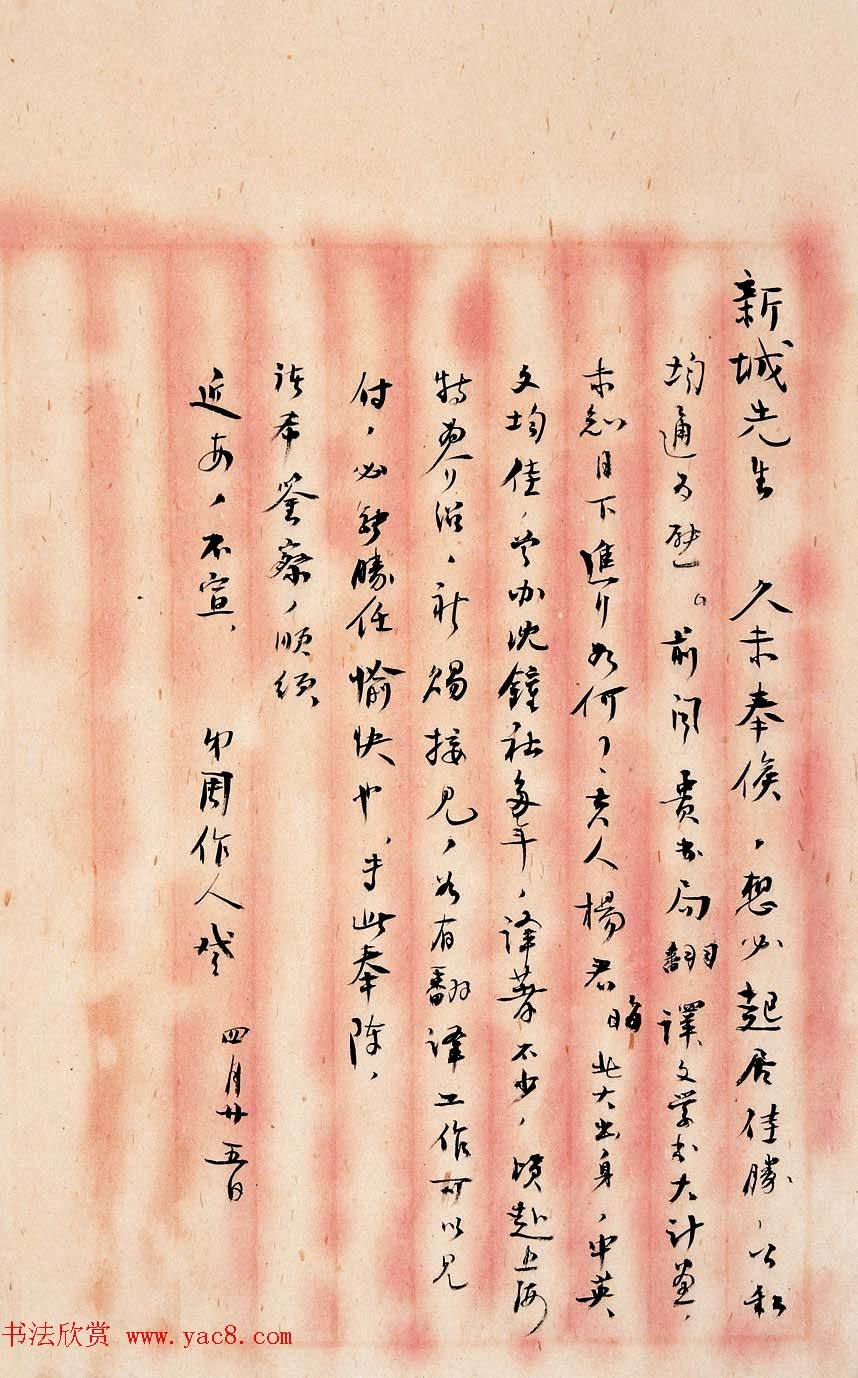 新城先生 久未奉候，想必起居佳勝，公私
均適为慰。前闻贵书局翻譯文学书大计画，
未知目下進行如何？友人楊君晦北大出身，中英
文均佳，曾办沈鐘社多年，譯著不少，顷赴上海
特為介绍，祈賜接见，如有翻译工作可以见
付，必能勝任愉快也，专此奉陈，
诸希鉴察，顺颂
近安，不宣。 弟周作人啓 四月廿五日
书法欣赏 www.yac8.com